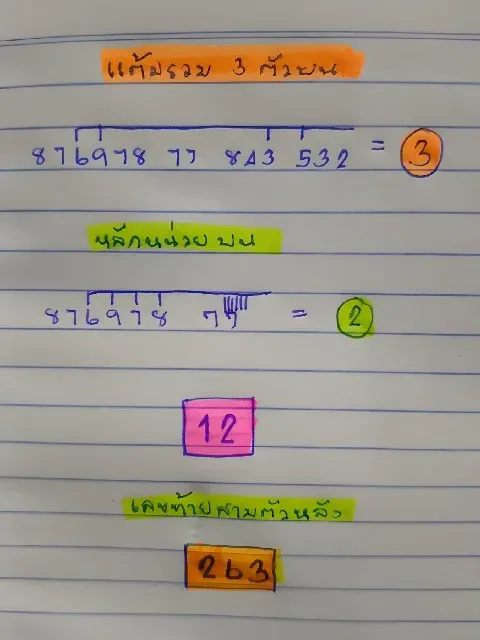 แต้มรวม 3 ตัวบน
876978 77 843 532 = 3
หลักหน่วยบน
876978 77 = 2
12
เลขท้ายสามตัวหลัง
263